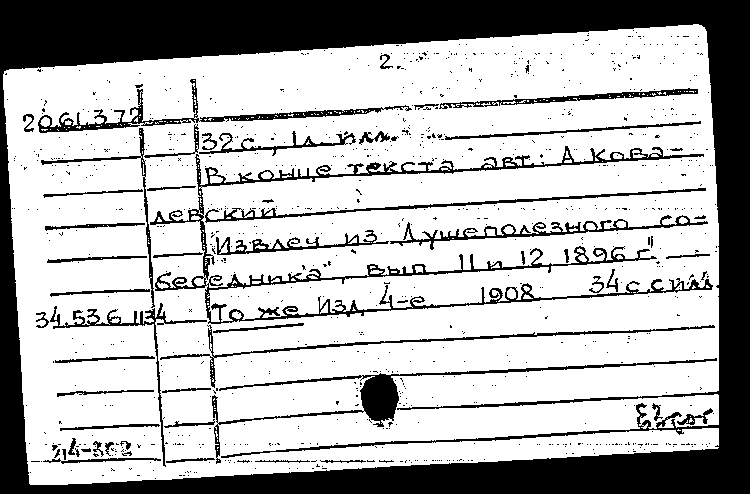 2.
20.61.3.72
32 с., 1 л. илл.
В конце текста авт.: А Кова-
левский
"Извлеч из Душеполезного со-
беседника", вып 11 и 12, 1896 г."
34.53.6.1134 То же Изд 4-е. 1908 34 с с илл.